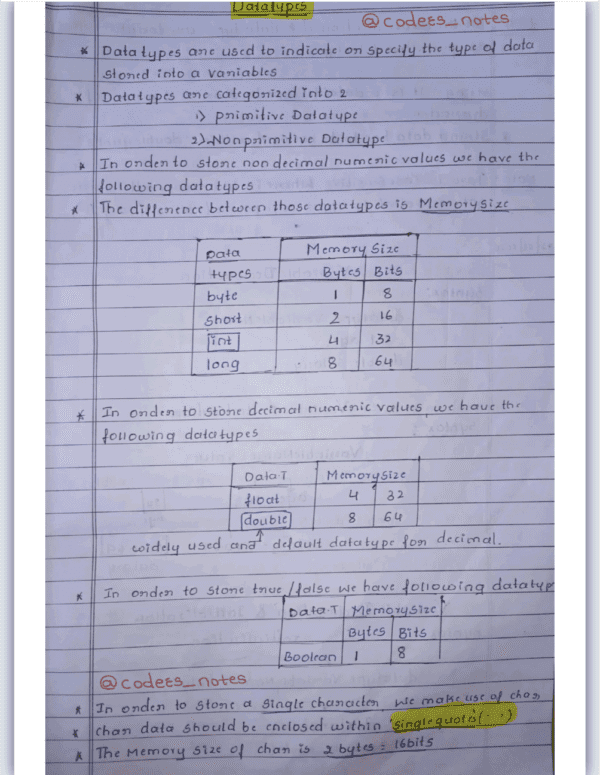 Datatypes
@codees_notes
* Datatypes are used to indicate or specify the type of data
stored into a variables
* Datatypes are categorized into 2
1) primitive Datatype
2) Nonprimitive Datatype
* In order to store non decimal numeric values we have the
following datatypes
* The difference between those datatypes is Memory size
Data Memory Size
types Bytes Bits
byte 1 8
short 2 16
int 4 32
long 8 64
* In order to store decimal numeric values, we have the
following datatypes
Data.T Memory size
float 4 32
double 8 64
widely used and default datatype for decimal.
* In order to store true/false we have following datatyp
Data.T Memory size
Bytes Bits
Boolean 1 8
@codees_notes
* In order to store a single character, we make use of char
* char data should be enclosed within 'single quote'(' ')
* The Memory size of char is 2 bytes = 16bits